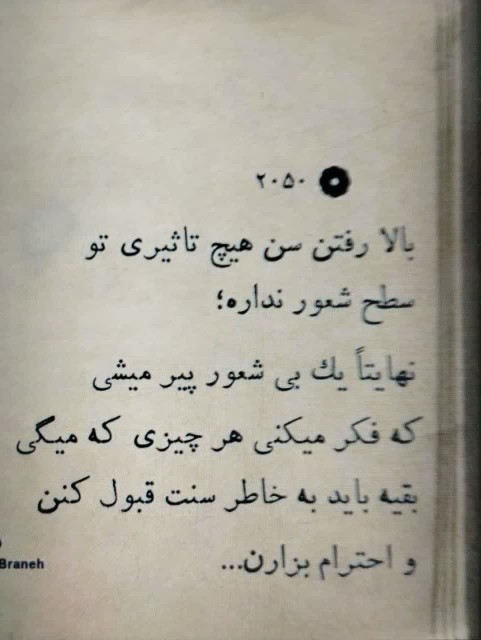 ۲۰۵۰
بالا رفتن سن هیچ تاثیری تو
سطح شعور نداره؛
نهایتاً یك بی شعور پیر میشی
که فکر میکنی هر چیزی که میگی
بقیه باید به خاطر سنت قبول کنن
و احترام بزارن...
Braneh